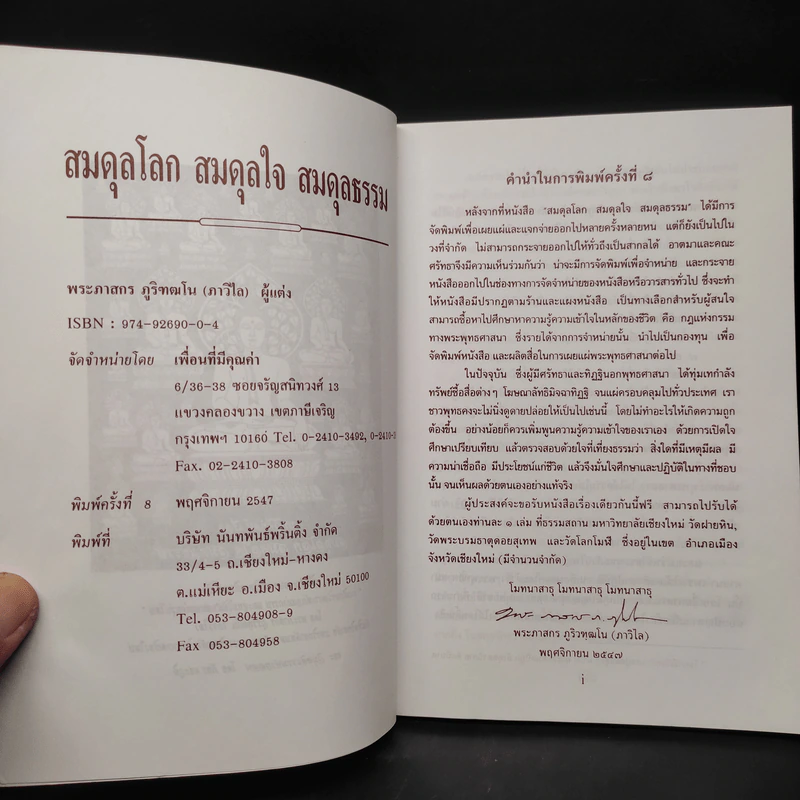 สมดุลโลก สมดุลใจ สมดุลธรรม
พระภาสกร ภูริฑฒโน (ภาวิไล) ผู้แต่ง
ISBN : 974-92690-0-4
จัดจำหน่ายโดย เพื่อนที่มีคุณค่า
6/36-38 ซอยจรัญสนิทวงศ์ 13
แขวงคลองขวาง เขตภาษีเจริญ
กรุงเทพฯ 10160 Tel. 0-2410-3492, 0-2410-3
Fax. 02-2410-3808
พิมพ์ครั้งที่ 8 พฤศจิกายน 2547
พิมพ์ที่ บริษัท นันทพันธ์พริ้นติ้ง จำกัด
33/4-5 ถ.เชียงใหม่-หางดง
ต.แม่เหียะ อ.เมือง จ.เชียงใหม่ 50100
Tel. 053-804908-9
Fax 053-804958
คำนำในการพิมพ์ครั้งที่ ๘
หลังจากที่หนังสือ "สมดุลโลก สมดุลใจ สมดุลธรรม" ได้มีการ
จัดพิมพ์เพื่อเผยแผ่และแจกจ่ายออกไปหลายครั้งหลายหน แต่ก็ยังเป็นไปใน
วงที่จำกัด ไม่สามารถกระจายออกไปให้ทั่วถึงเป็นสากลได้ อาตมาและคณะ
ศรัทธาจึงมีความเห็นร่วมกันว่า น่าจะมีการจัดพิมพ์เพื่อจำหน่าย และกระจาย
หนังสือออกไปในช่องทางการจัดจำหน่ายของหนังสือหรือวารสารทั่วไป ซึ่งจะทำ
ให้หนังสือมีปรากฏตามร้านและแผงหนังสือ เป็นทางเลือกสำหรับผู้สนใจ
สามารถซื้อหาไปศึกษาหาความรู้ความเข้าใจในหลักของชีวิต คือ กฎแห่งกรรม
ทางพระพุทธศาสนา ซึ่งรายได้จากการจำหน่ายนั้น นำไปเป็นกองทุน เพื่อ
จัดพิมพ์หนังสือ และผลิตสื่อในการเผยแผ่พระพุทธศาสนาต่อไป
ในปัจจุบัน ซึ่งผู้มีศรัทธาและทิฏฐินอกพุทธศาสนา ได้ทุ่มเทกำลัง
ทรัพย์ซื้อสื่อต่างๆ โฆษณาลัทธิมิจฉาทิฏฐิ จนแผ่ครอบคลุมไปทั่วประเทศ เรา
ชาวพุทธคงจะไม่นิ่งดูดายปล่อยให้เป็นไปเช่นนี้ โดยไม่ทำอะไรให้เกิดความถูก
ต้องขึ้น อย่างน้อยก็ควรเพิ่มพูนความรู้ความเข้าใจของเราเอง ด้วยการเปิดใจ
ศึกษาเปรียบเทียบ แล้วตรวจสอบด้วยใจที่เที่ยงธรรมว่า สิ่งใดที่มีเหตุมีผล มี
ความน่าเชื่อถือ มีประโยชน์แก่ชีวิต แล้วจึงมั่นใจศึกษาและปฏิบัติในทางที่ชอบ
นั้น จนเห็นผลด้วยตนเองอย่างแท้จริง
ผู้ประสงค์จะขอรับหนังสือเรื่องเดียวกันนี้ฟรี สามารถไปรับได้
ด้วยตนเองท่านละ ๑ เล่ม ที่ธรรมสถาน มหาวิทยาลัยเชียงใหม่ วัดฝายหิน,
วัดพระบรมธาตุดอยสุเทพ และวัดโลกโมฬี ซึ่งอยู่ในเขต อำเภอเมือง
จังหวัดเชียงใหม่ (มีจำนวนจำกัด)
โมทนาสาธุ โมทนาสาธุ โมทนาสาธุ
พระภาสกร ภูริวฑฺฒโน (ภาวิไล)
พฤศจิกายน ๒๕๔๗
i